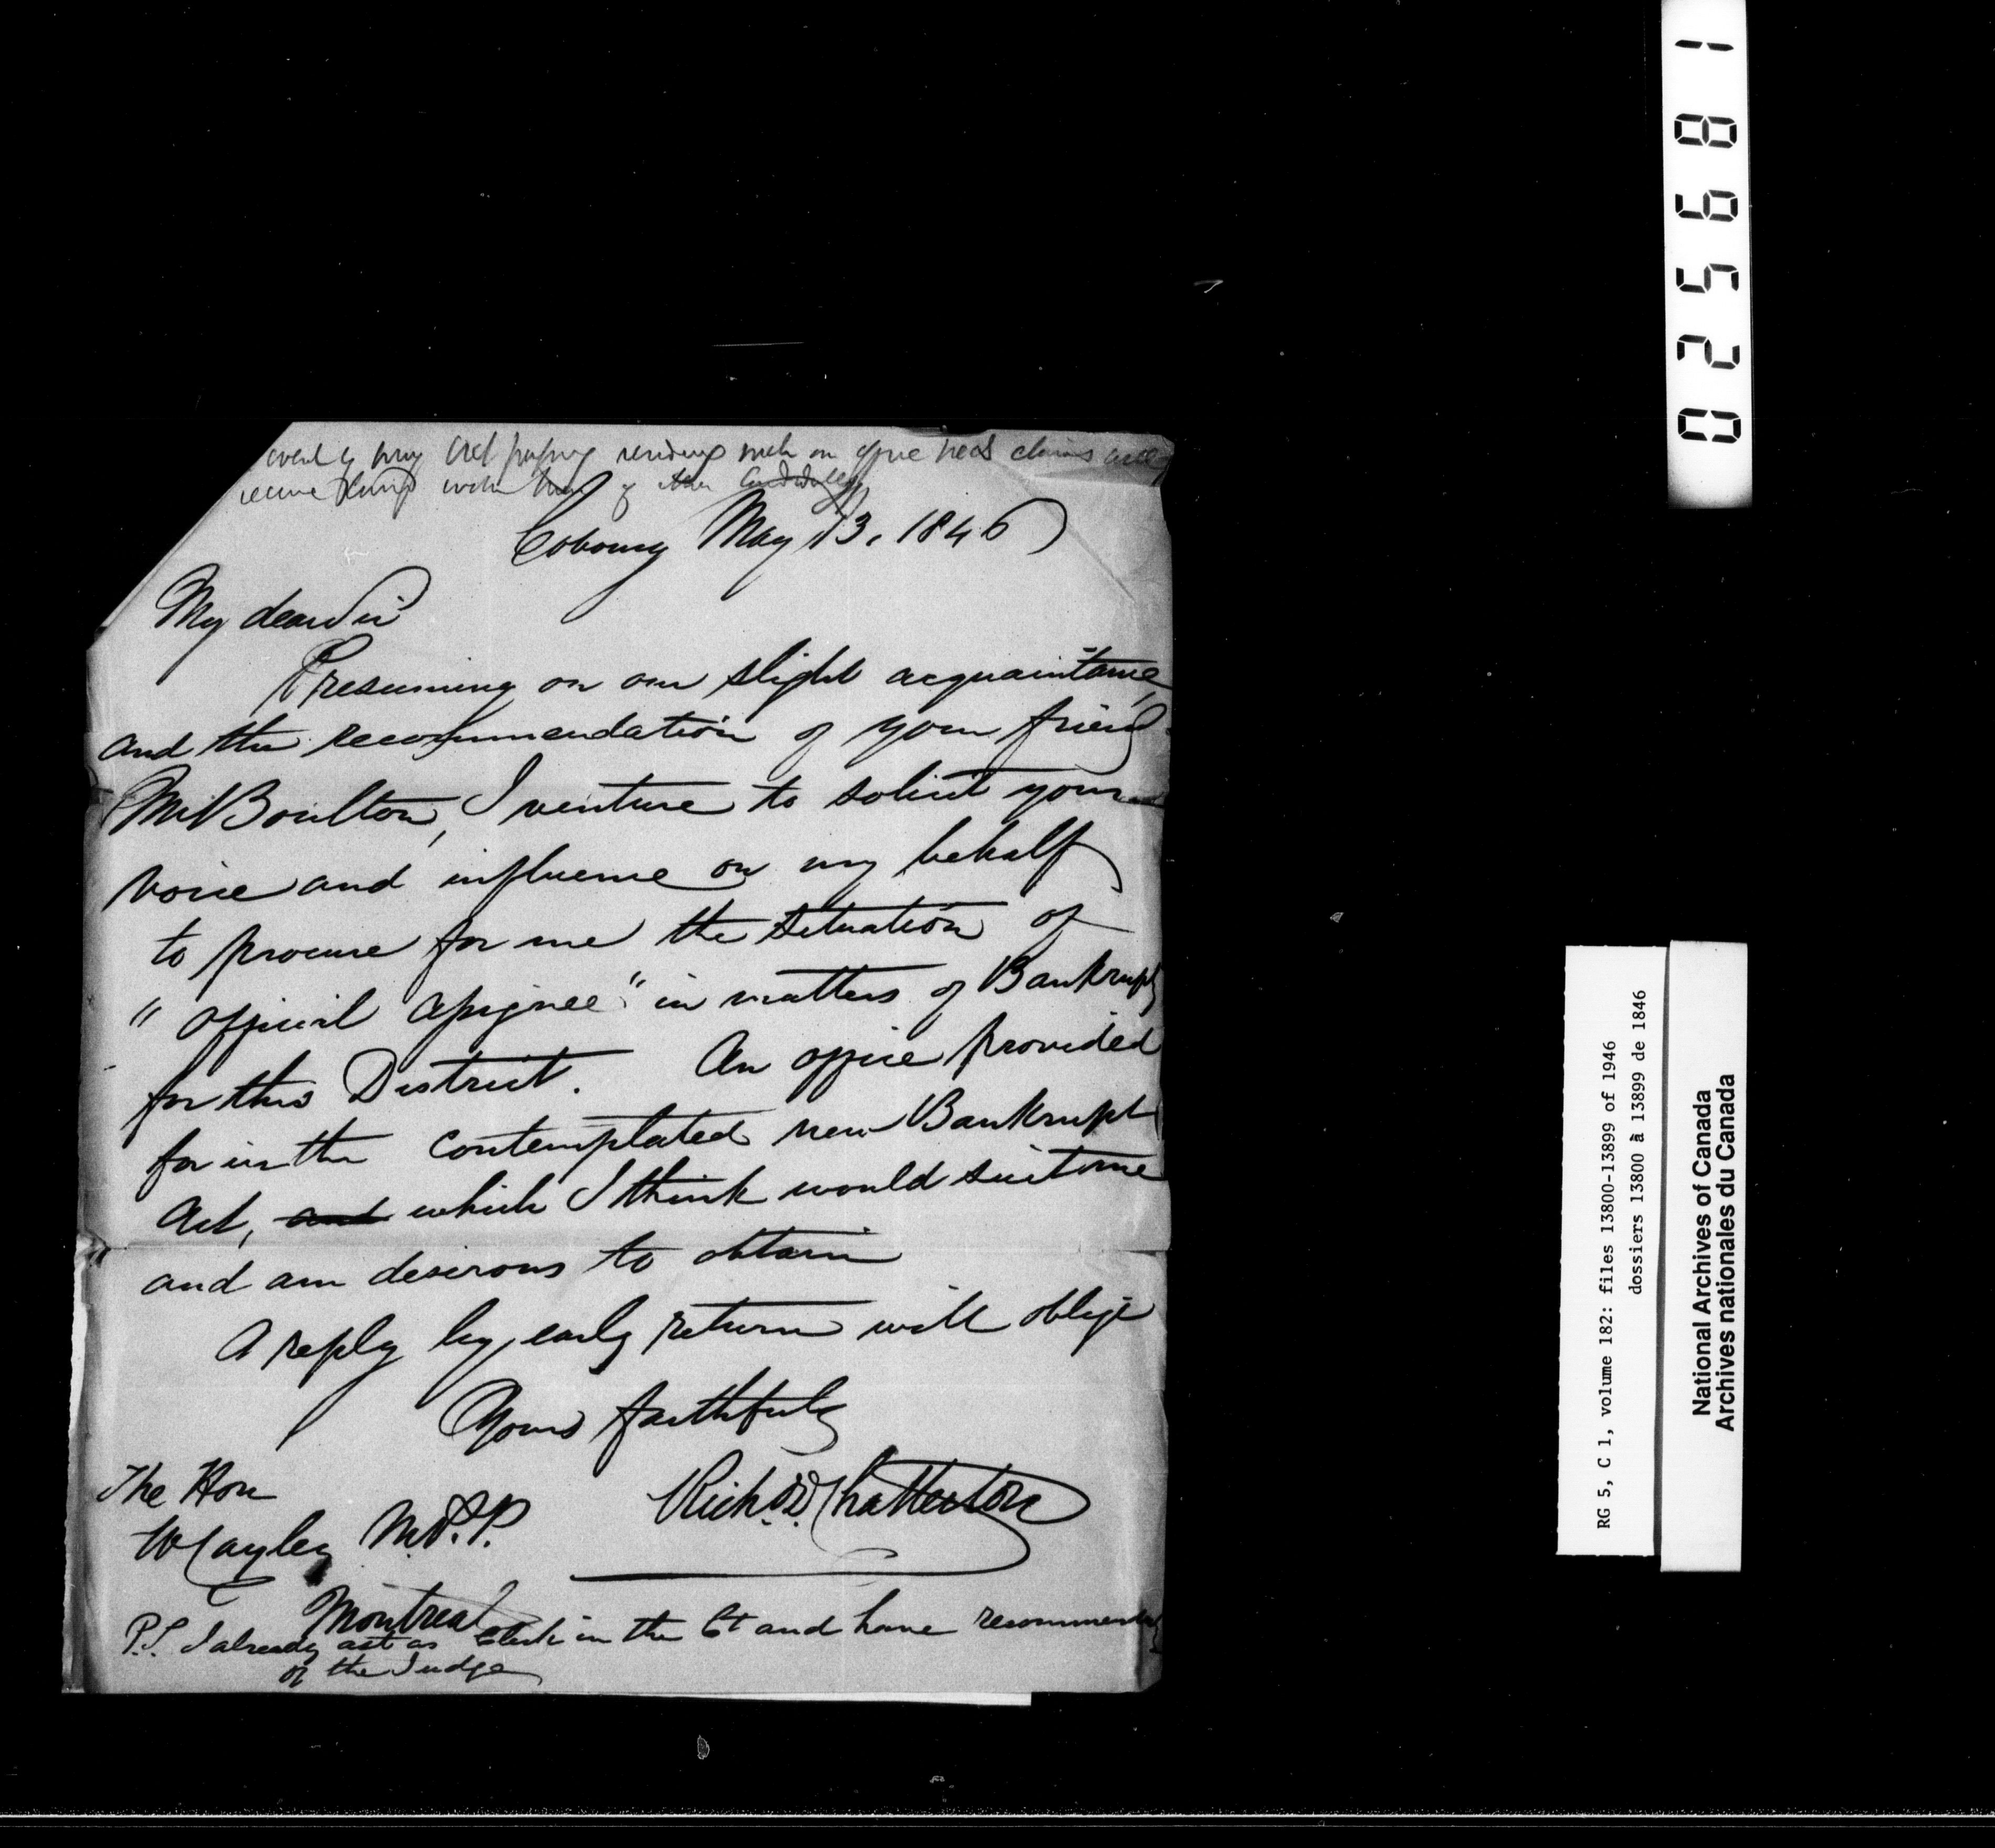 event of any Act passing rendering such an office necs claims will
receive along with those of other Candidates
Cobourg May 13, 1846
My dear Sir
Presuming on our slight acquaintance
and the recommendation of your friend
Mr Boulton, I venture to solicit your
voice and influence on my behalf
to procure for me the situation of
"official assignee" in matters of Bankruptcy
for this District. An office provided
for in the contemplated new Bankrupt
Act, and which I think would suit me
and am desirous to obtain
A reply by early return will oblige
Yours faithfully
Rich. D. Chatterton
The Hon
W Cayley M.P.P.
Montreal
P.S. I already act as Clerk in the Ct and have recommend
of the Judge
025681
RG 5, C 1, volume 182: files 13800-13899 of 1946
dossiers 13800 à 13899 de 1846
National Archives of Canada
Archives nationales du Canada